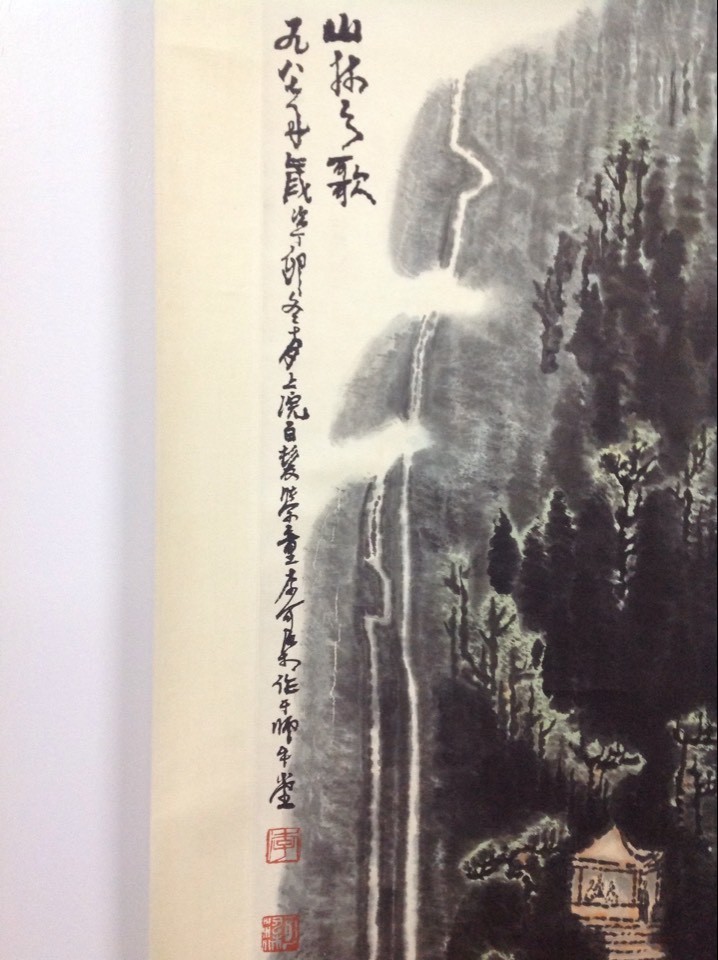 山林之歌
一九八七年歲次丁卯冬上浣白髮學童李可染作于師牛堂
李
可染